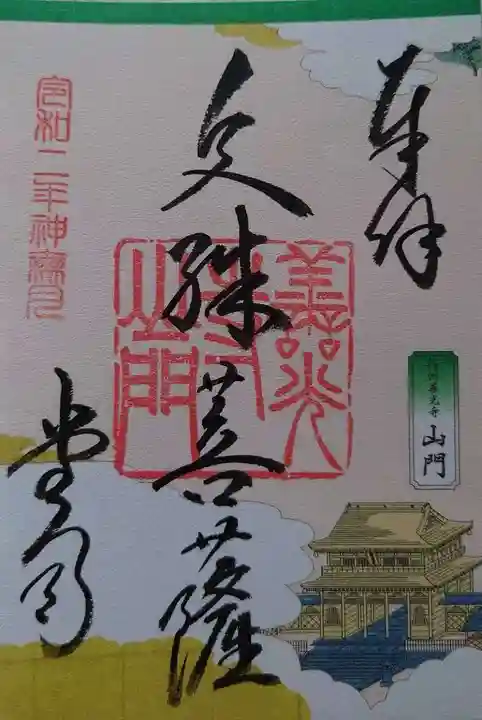 奉拝
文殊菩薩
堂司
善光寺
山門
令和二年神無月
信州善光寺
山門